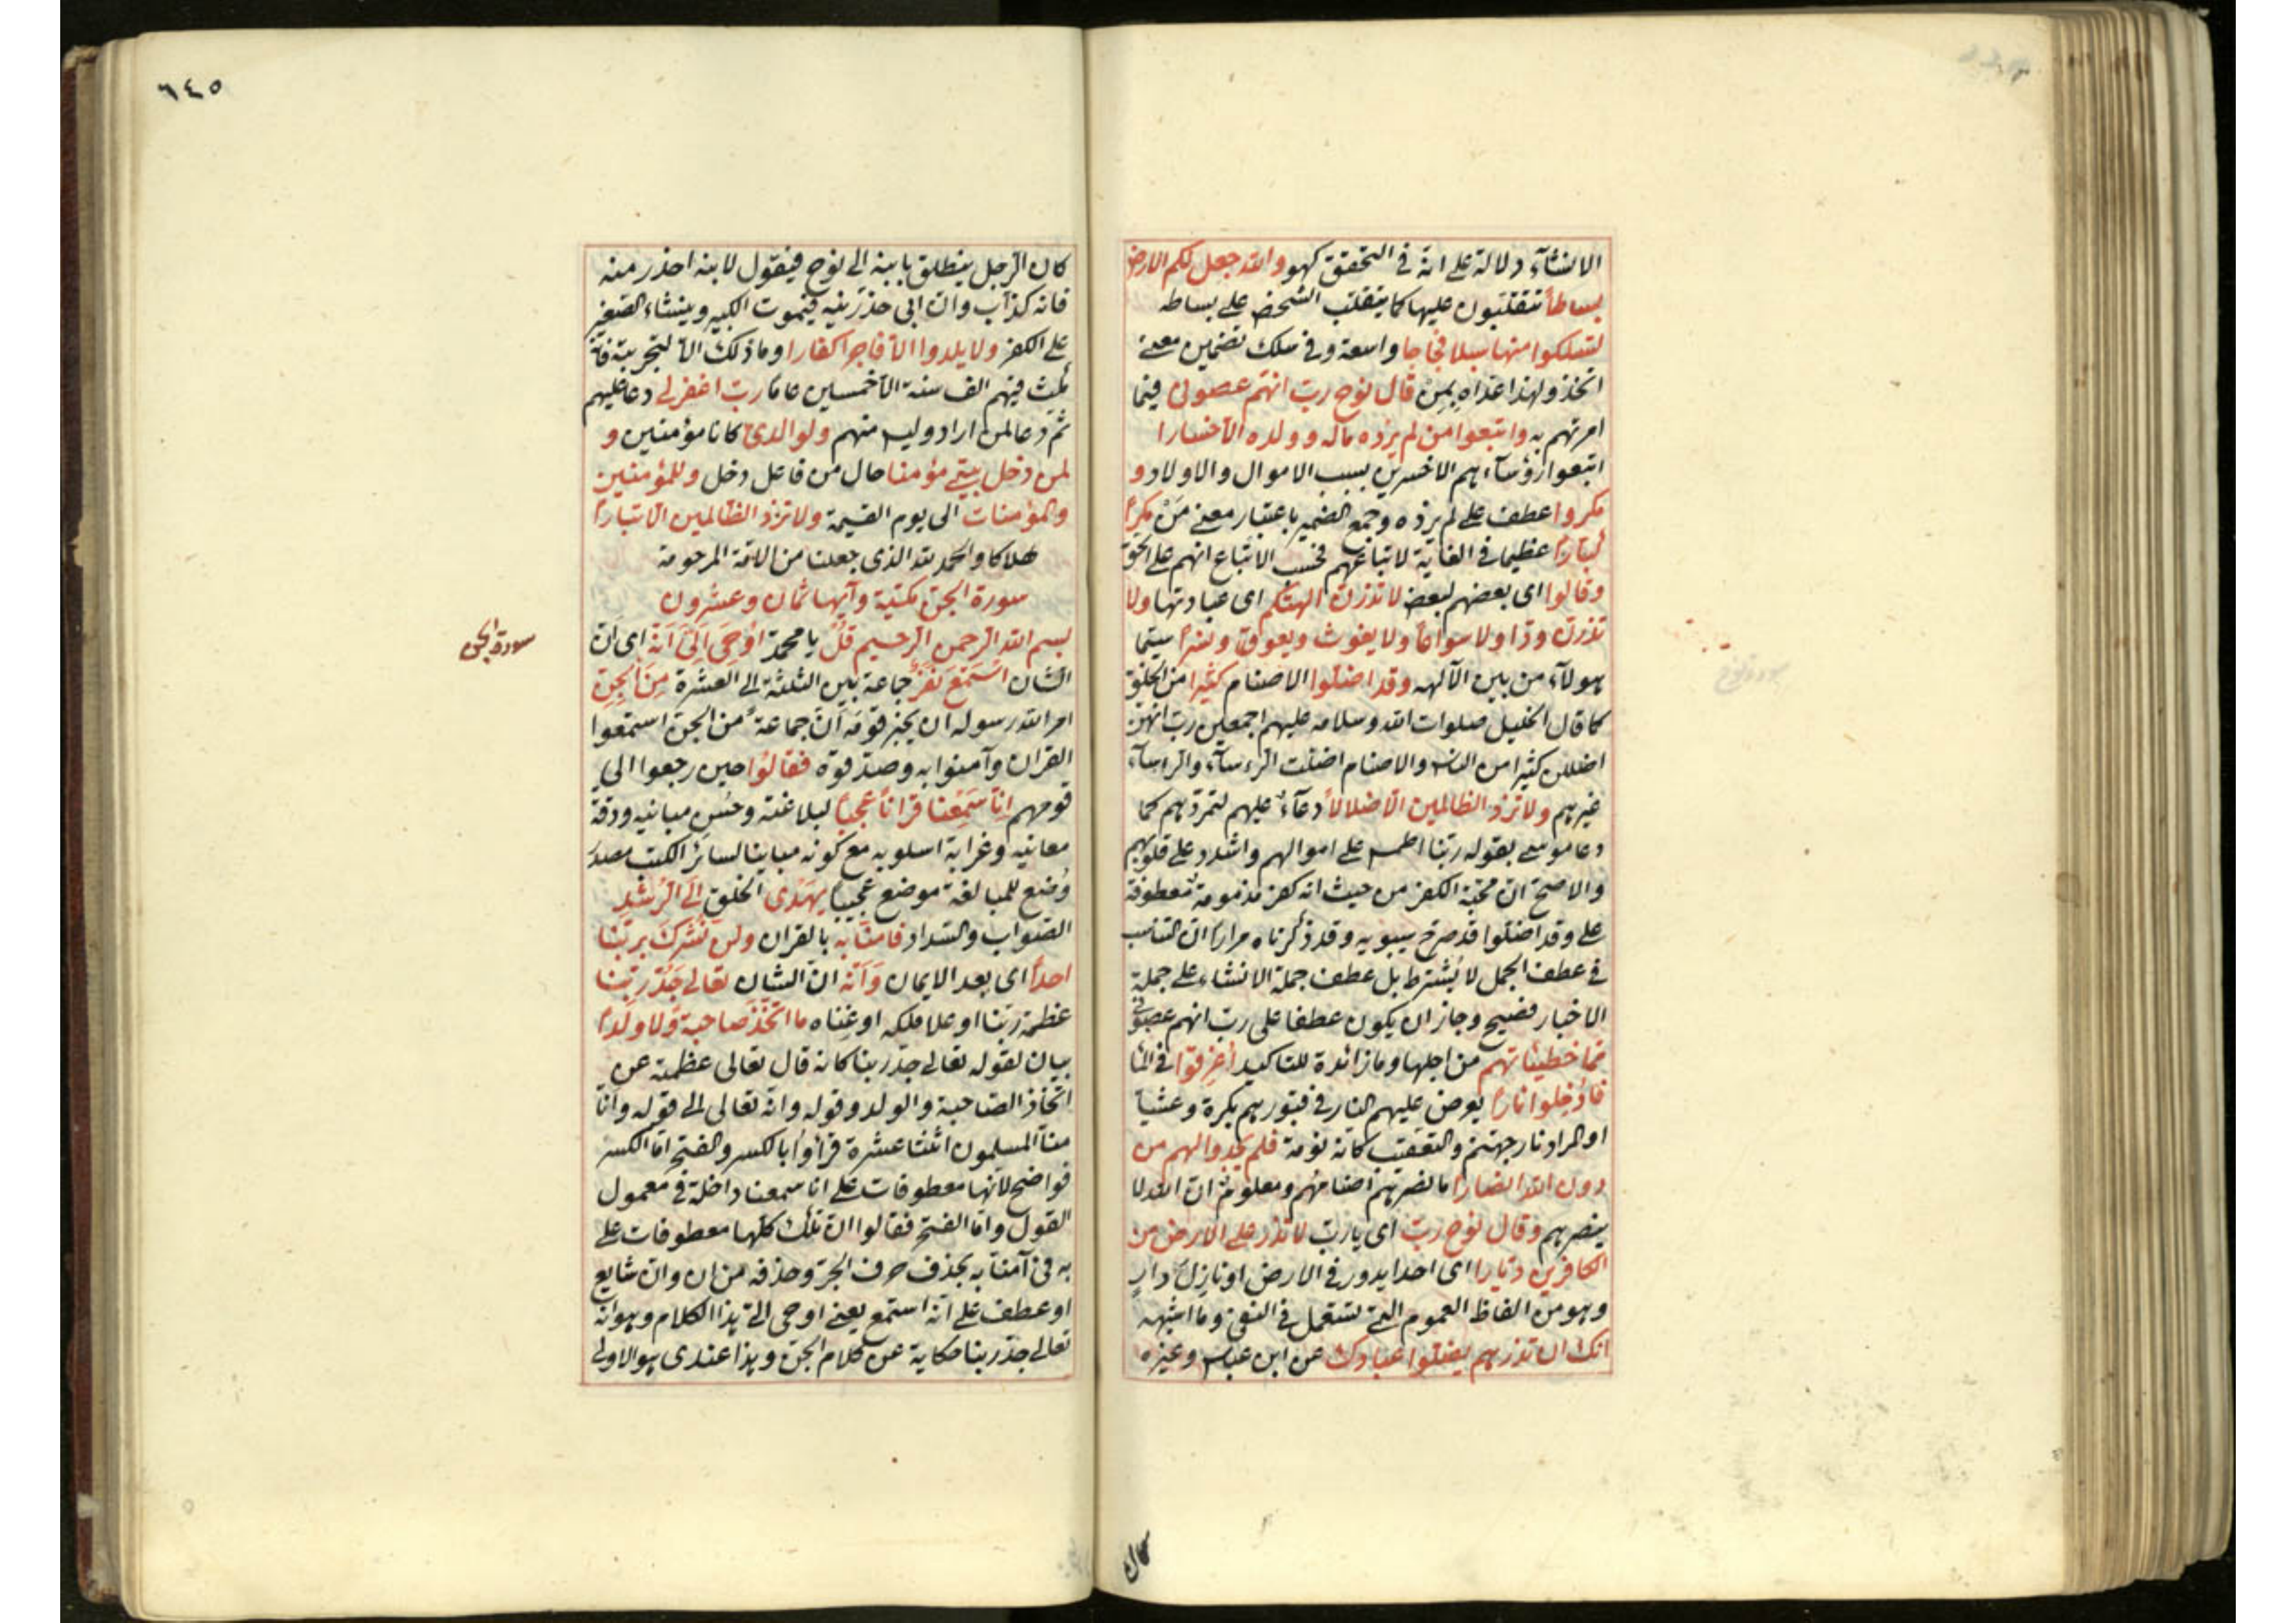 الانشاء دلالة على انه في التحقق كهو والله جعل لكم الارض
بساطاً تتقلبون عليها كما يتقلب الشخص على بساطه
لتسلكوا منها سبلا فجاجا واسعة وفي سلك تضمين معنى
اتخذ ولهذا عداه بمن قال نوح رب انهم عصوني فيما
امرتهم به واتبعوا من لم يزده ماله وولده الاخسارا
اتبعوا رؤسآءهم الاخسرين بسبب الاموال والاولاد و
مكروا عطف على لم يزده وجمع الضمير باعتبار معنى مَنْ مكراً
كباراً عظيما في الغاية لاتباعهم فحسب الاتباع انهم على الحق
وقالوا اى بعضهم لبعض لا تذرن الهتكم اى عبادتها ولا
تذرن ودّا ولا سواعاً ولا يغوث ويعوق ونسراً سيما
هولآء من بين الآلهه وقد اضلوا الاصنام كثيرا من الخلق
كما قال الخليل صلوات الله وسلامه عليهم اجمعين رب انهن
اضللن كثيرا من الناس والاصنام اضلت الرءسآء والرءسآء
غيرهم ولا تزد الظالمين الا ضلالاً دعآء عليهم لتمردهم كما
دعا موسى بقوله ربنا اطمس على اموالهم واشدد على قلوبهم
والاصح ان محبة الكفر من حيث انه كفر مذمومة معطوفة
على وقد اضلوا قد صرح سيبويه وقد ذكرناه مرارا ان التناسب
في عطف الجمل لا يُشترط بل عطف جملة الانشاء على جملة
الاخبار فصيح وجاز ان يكون عطفا على رب انهم عصوني
مما خطيئاتهم من اجلها وما زائدة للتاكيد أغرقوا في الما
فأدخلوا ناراً يعرض عليهم النار في قبورهم بكرة وعشيا
او المراد نار جهنم والتعقيب كانه نومة فلم يجدوا لهم من
دون الله انصارا ما نصرتهم اصنامهم ومعلوم ان الله لا
ينصرهم وقال نوح رب اى يا رب لا تذر على الارض من
الكافرين ديارا اى احدا يدور في الارض او نازل دارٍ
وهو من الفاظ العموم التى تستعمل في النفى وما اشبهه
انك ان تذرهم يضلوا عبادك عن ابن عباس وغيره
كان
٦٤٥
كان الرجل ينطلق بابنه الى نوح فيقول لابنه احذر منه
فانه كذاب وان ابى حذرنيه فيموت الكبير وينشاء الصغير
على الكفر ولا يلدوا الا فاجرا كفارا وما ذلك الا لتجربته فانه
لبث فيهم الف سنة الا خمسين عاما رب اغفر لى دعا عليهم
ثم دعا لمن اراد وليس منهم ولوالدى كانا مؤمنين و
لمن دخل بيتى مؤمنا حال من فاعل دخل وللمؤمنين
والمؤمنات الى يوم القيمة ولا تزد الظالمين الا تبارا
هلاكا والحمد لله الذى جعلنا من الامة المرحومة
سورة الجن مكية وآيها ثمان وعشرون
بسم الله الرحمن الرحيم قُلْ يا محمد اُوحِىَ اِلَىَّ اَنَّهُ اى ان
الشان اسْتَمَعَ نَفَرٌ جماعة بين الثلثة الى العشرة مِنَ الجِنِّ
امر الله رسوله ان يخبر قومه اَنّ جماعة من الجن استمعوا
القران وآمنوا به وصدقوه فقالوا حين رجعوا الى
قومهم اِنّا سَمِعْنا قراناً عَجَباً لبلاغته وحُسْن مبانيه ودقة
معانيه وغرابة اسلوبه مع كونه مباينا لسائر الكتب مصدر
وُضع للمبالغة موضع عجيباً يهدى الخلق اِلَى الرُشْدِ
الصواب والسداد فامنا به بالقران ولن نُشرك بربنا
احداً اى بعد الايمان وَاَنَّه ان الشان تعالى جَدُّ ربنا
عظمة ربنا او علا ملكه او غناه ما اتّخذ صاحبةً ولا ولداً
بيان لقوله تعالى جد ربنا كانه قال تعالى عظمته عن
اتخاذ الصاحبة والولد وقوله وانه تعالى الى قوله وانا
منا المسلمون اثنتا عشرة قرأوا بالكسر والفتح اما الكسر
فواضح لانها معطوفات على انا سمعنا داخلة في معمول
القول واما الفتح فقالوا ان تلك كلها معطوفات على
به فى آمنا به بحذف حرف الجر وحذفه من ان وان شايع
او عطف على انه استمع يعنى اوحى الىّ هذا الكلام وهو انه
تعالى جد ربنا حكاية عن كلام الجن وهذا عندى هو الاولى
سورة الجن